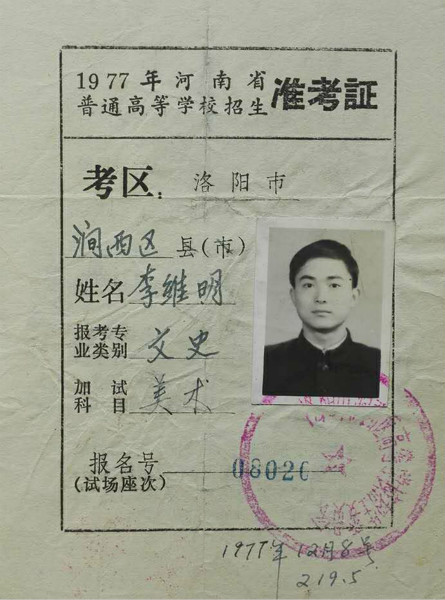 1977年河南省
普通高等学校招生
准考証
考区: 洛阳市
涧西区 县(市)
姓名 李维明
报考专业类别 文史
加试科目 美术
报名号
(试场座次)
08020
1977年12月8号
219.5